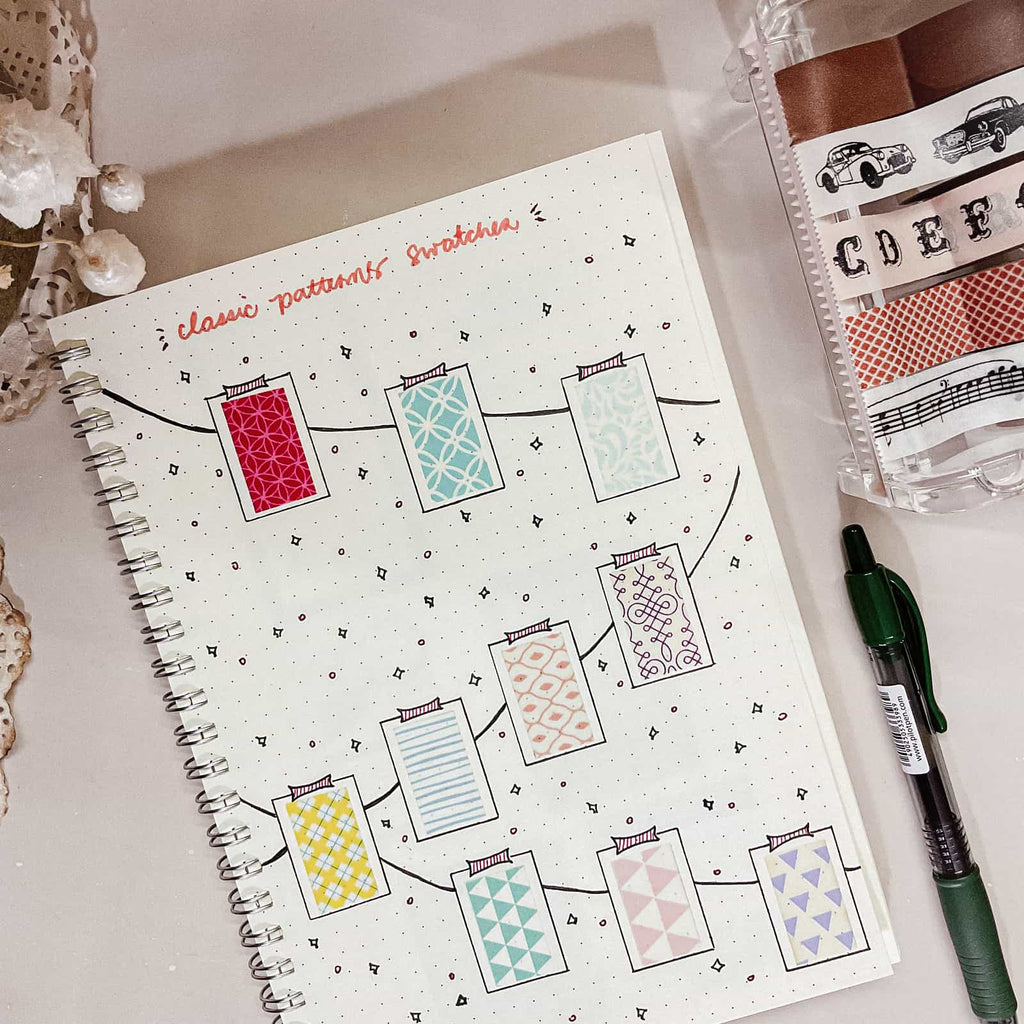 classic patterns swatches
C D E E
www.pilotpen.com